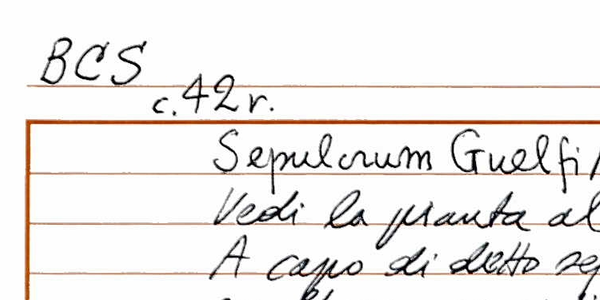 BCS
c. 42 r.
Sepulcrum Guelfi
Vedi la pianta al
A capo di detto